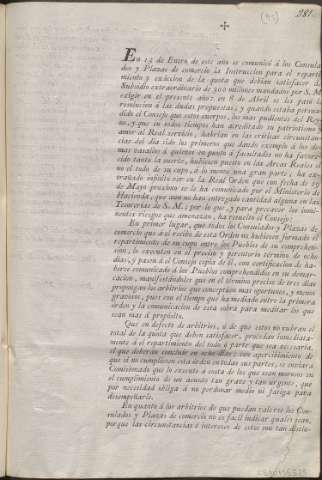 (93)
281
✠
En 12 de Enero de este año se comunicó á los Consula-
dos y Plazas de comercio la Instruccion para el reparti-
miento y exâccion de la quota que debian satisfacer del
Subsidio extraordinario de 300 millones mandado por S. M.
exîgir en el presente año: en 8 de Abril se les pasó la
resolucion á las dudas propuestas; y quando estaba persua-
dido el Consejo que estos cuerpos, los mas pudientes del Rey-
no, y que en todos tiempos han acreditado su patriotismo y
amor al Real servicio, habrian en las críticas circunstan-
cias del dia sido los primeros que dando exemplo á los de-
mas vasallos á quienes en punto á facultades no ha favore-
cido tanto la suerte, hubiesen puesto en las Arcas Reales si
no el todo de su cupo, á lo menos una gran parte; ha ex-
trañado infinito ver en la Real Orden que con fecha de 29
de Mayo próximo se le ha comunicado por el Ministerio de
Hacienda, que aun no han entregado cantidad alguna en las
Tesorerías de S. M.; por lo que, y para precaver los inmi-
nentes riesgos que amenazan, ha resuelto el Consejo:
En primer lugar, que todos los Consulados y Plazas de
comercio que al recibo de esta Orden no hubiesen formado el
repartimiento de su cupo entre los Pueblos de su comprehen-
sion, lo executen en el preciso y perentorio término de ocho
dias, y pasen á el Consejo copia de él, con certificacion de ha-
berse comunicado á los Pueblos comprehendidos en su demar-
cacion, manifestándoles que en el término preciso de tres dias
propongan los arbitrios que conceptúen mas oportunos, y menos
gravosos, pues con el tiempo que ha mediado entre la primera
orden y la comunicacion de esta sobra para meditar los que
sean mas á propósito.
Que en defecto de arbitrios, ó de que estos no cubran el
total de la quota que deben satisfacer, procedan inmediata-
mente á el repartimiento del todo ó parte que sea necesaria,
el que deberán concluir en ocho dias; con apercibimiento de
que si no cumpliesen esta orden en todas sus partes, se enviará
Comisionado que lo execute á costa de los que sean morosos en
el cumplimiento de un asunto tan grave y tan urgente, que
por necesidad obliga á no perdonar medio ni fatiga para
desempeñarlo.
En quanto á los arbitrios de que puedan valerse los Con-
sulados y Plazas de comercio no es facil indicar quales sean,
porque las circunstancias é intereses de estos son tan distin-